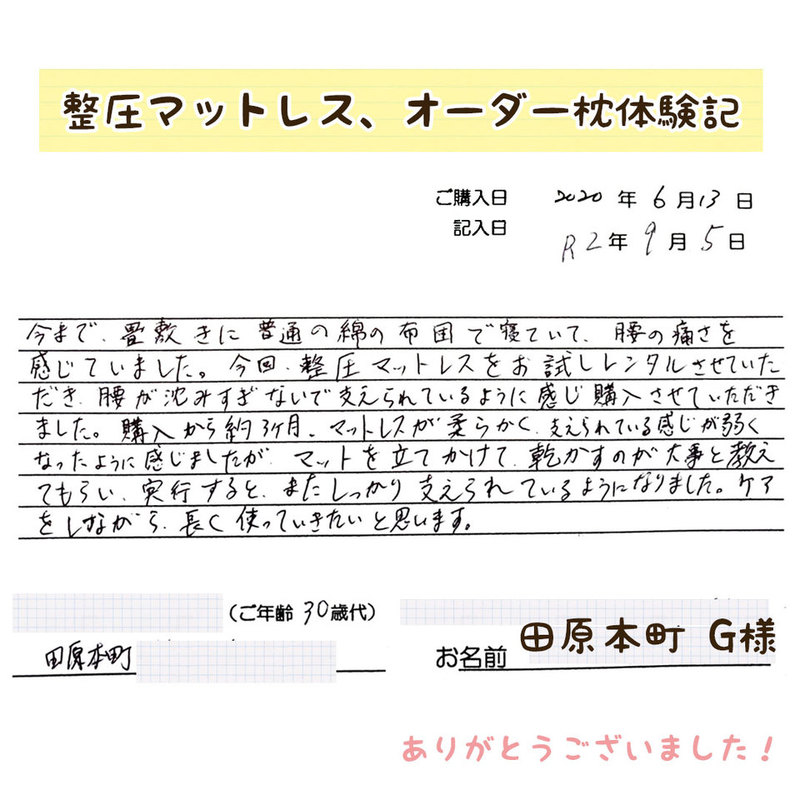 整圧マットレス、オーダー枕体験記
ご購入日 2020年6月13日
記入日 R2年9月5日
今まで、畳敷きに普通の綿の布団で寝ていて、腰の痛さを
感じていました。今回、整圧マットレスをお試しレンタルさせていた
だき、腰が沈みすぎないで支えられているように感じ購入させていただき
ました。購入から約3ヶ月、マットレスが柔らかく、支えられている感じが弱く
なったように感じましたが、マットを立てかけて、乾かすのが大事と教え
てもらい、実行すると、またしっかり支えられているようになりました。ケア
をしながら、長く使っていきたいと思います。
(ご年齢 30歳代)
田原本町
お名前 田原本町 G様
ありがとうございました!